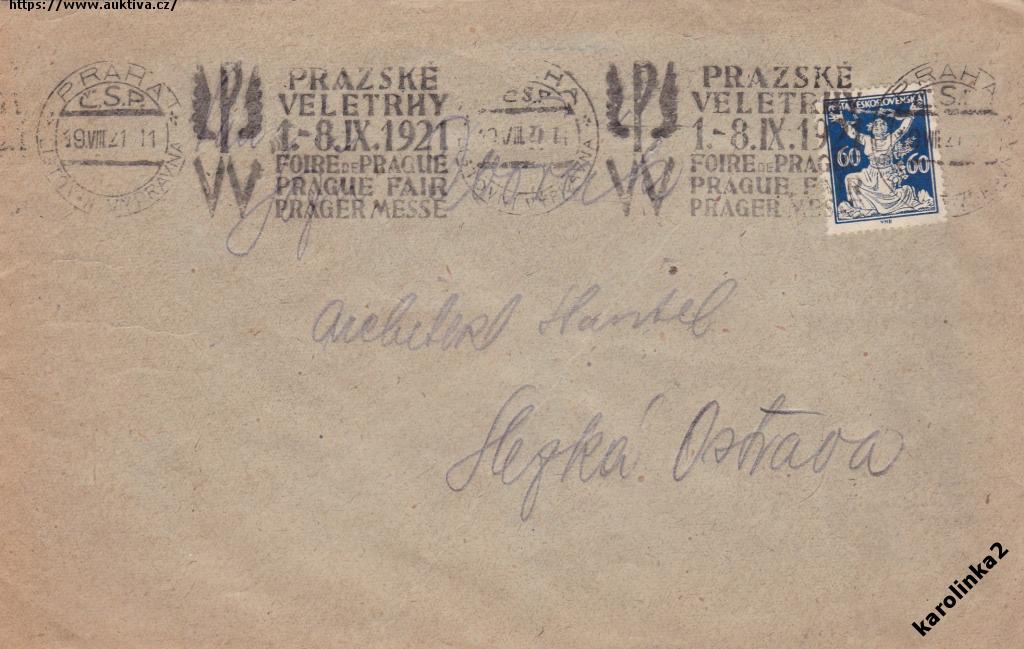 https://www.auktiva.cz/
PRAHA 1
Č.S.P.
19.VIII.21 11
PRAŽSKÉ
VELETRHY
1.-8.IX.1921
FOIRE DE PRAGUE
PRAGUE FAIR
PRAGER MESSE
Č.S.P.
PRAŽSKÉ
VELETRHY
1.-8.IX.19
FOIRE DE PRAG
PRAGUE F
PRAGER MES
PRAHA
POŠTA ČESKOSLOVENSKÁ
60 60
Josef Dvorák
Architekt
Slezká Ostrava
karolinka2